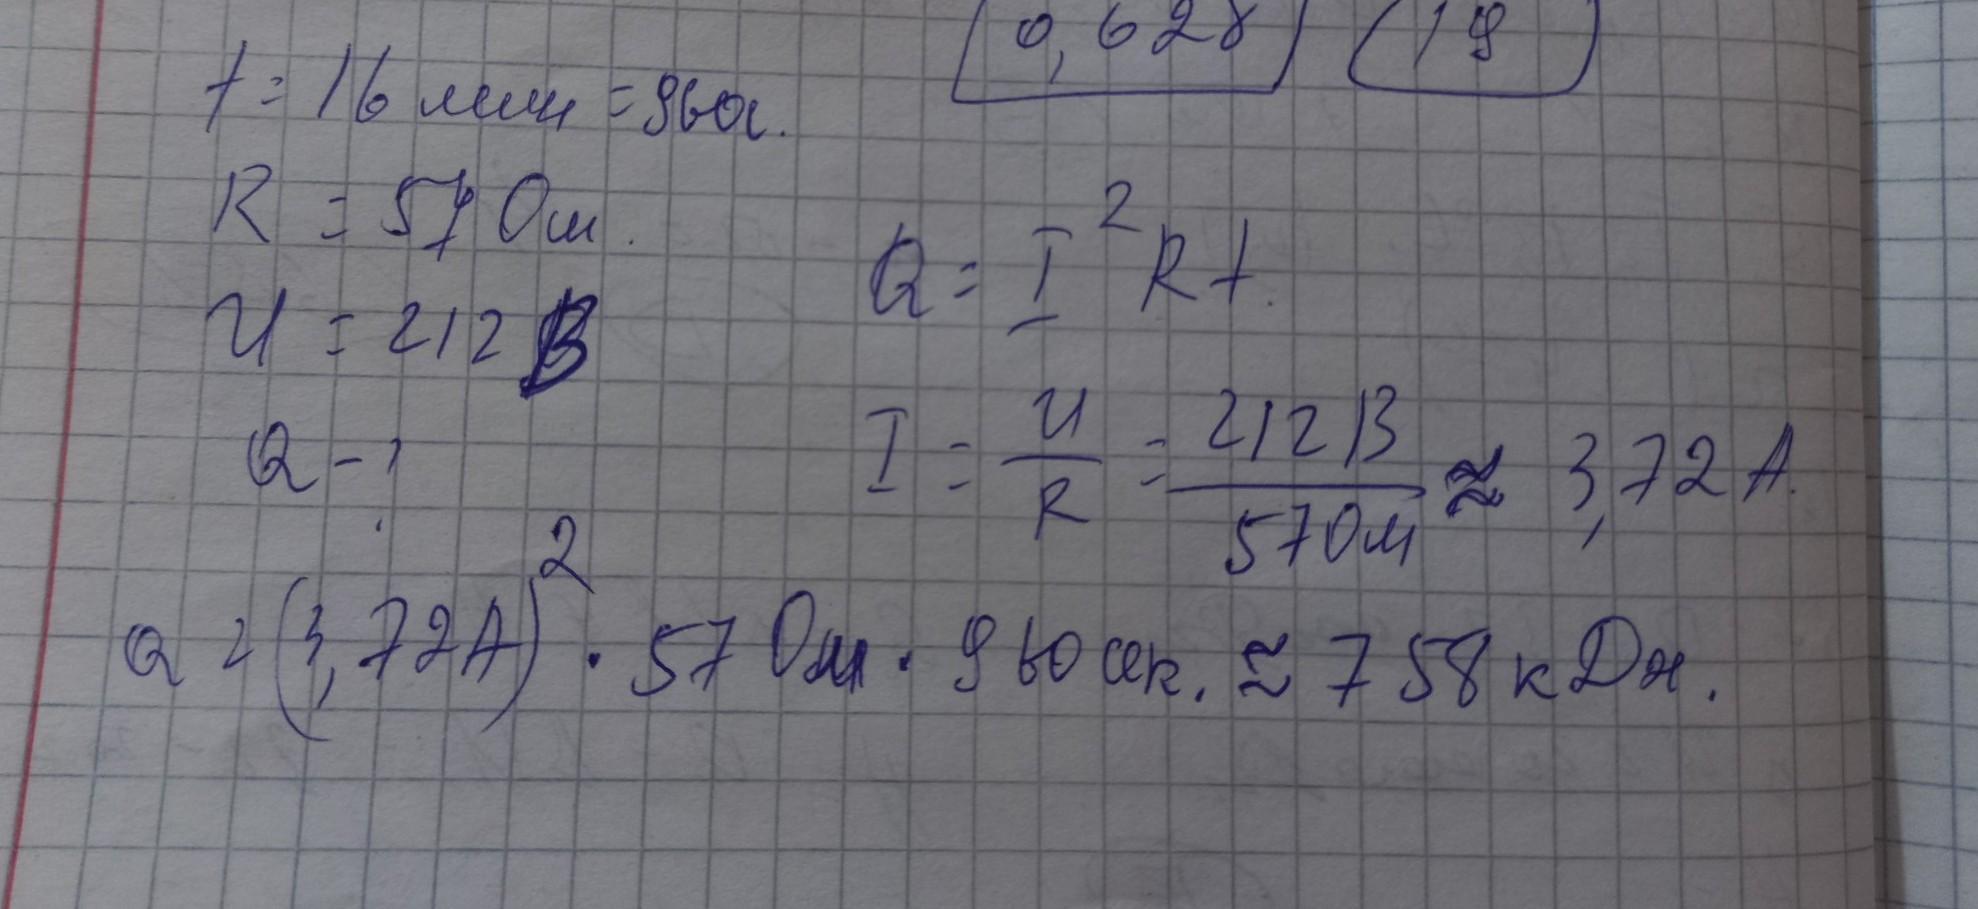 0,628 19
t = 16 мин = 960с.
R = 57 Ом.
U = 212 В
Q = I² R t.
Q - ?
I = U/R = 212В/57Ом ≈ 3,72 А.
Q = (3,72А)² · 57 Ом · 960 сек. ≈ 758 кДж.